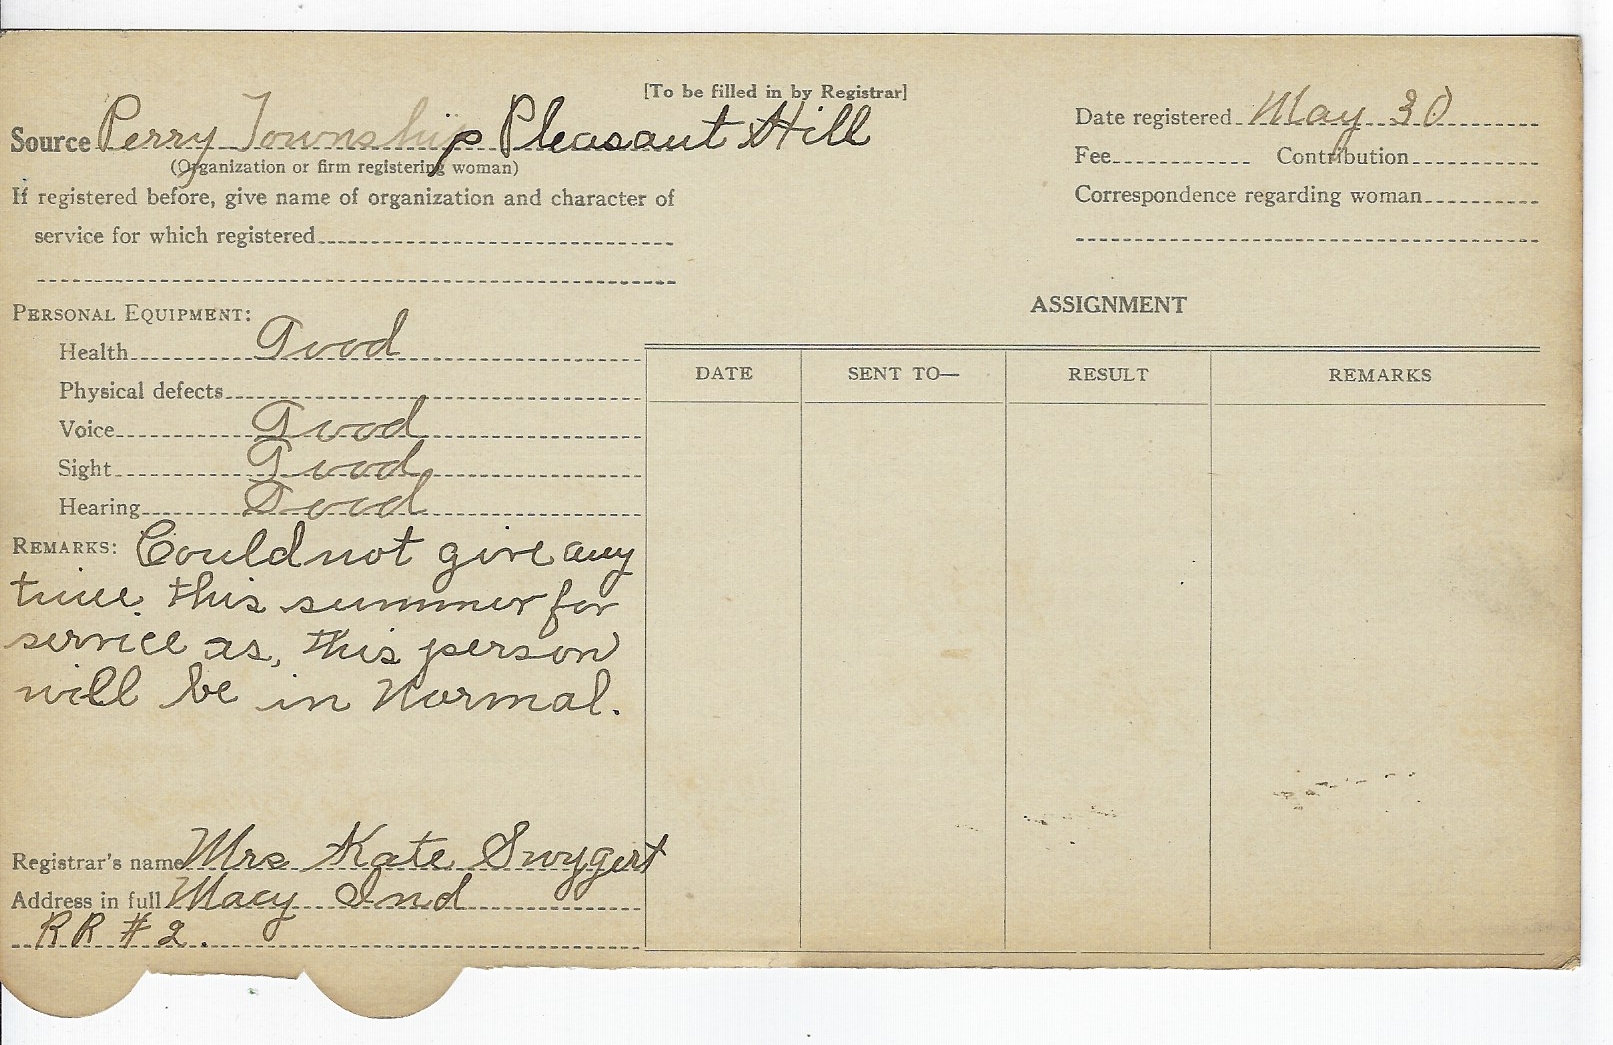 [To be filled in by Registrar]
Source Perry Township Pleasant Hill
(Organization or firm registering woman)
If registered before, give name of organization and character of
service for which registered
Date registered May 30
Fee Contribution
Correspondence regarding woman
PERSONAL EQUIPMENT:
Health Good
Physical defects
Voice Good
Sight Good
Hearing Good
REMARKS: Could not give any
time this summer for
service as, this person
will be in Normal.
Registrar's name Mrs Kate Swygert
Address in full Macy Ind
RR #2.
ASSIGNMENT
DATE SENT TO— RESULT REMARKS